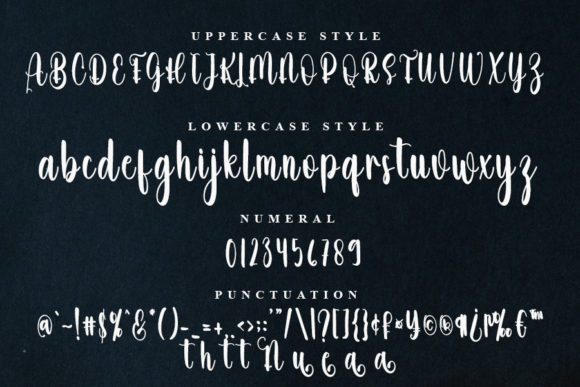 UPPERCASE STYLE
ABCDEFGHIJKLMNOPQRSTUVWXYZ
LOWERCASE STYLE
abcdefghijklmnopqrstuvwxyz
NUMERAL
0123456789
PUNCTUATION
@`~!#$%^&*()-_=+,.<>;:'"/\|?[]{}¢£¤¥©®¶¿₽‰€™
t h t t N u e a a